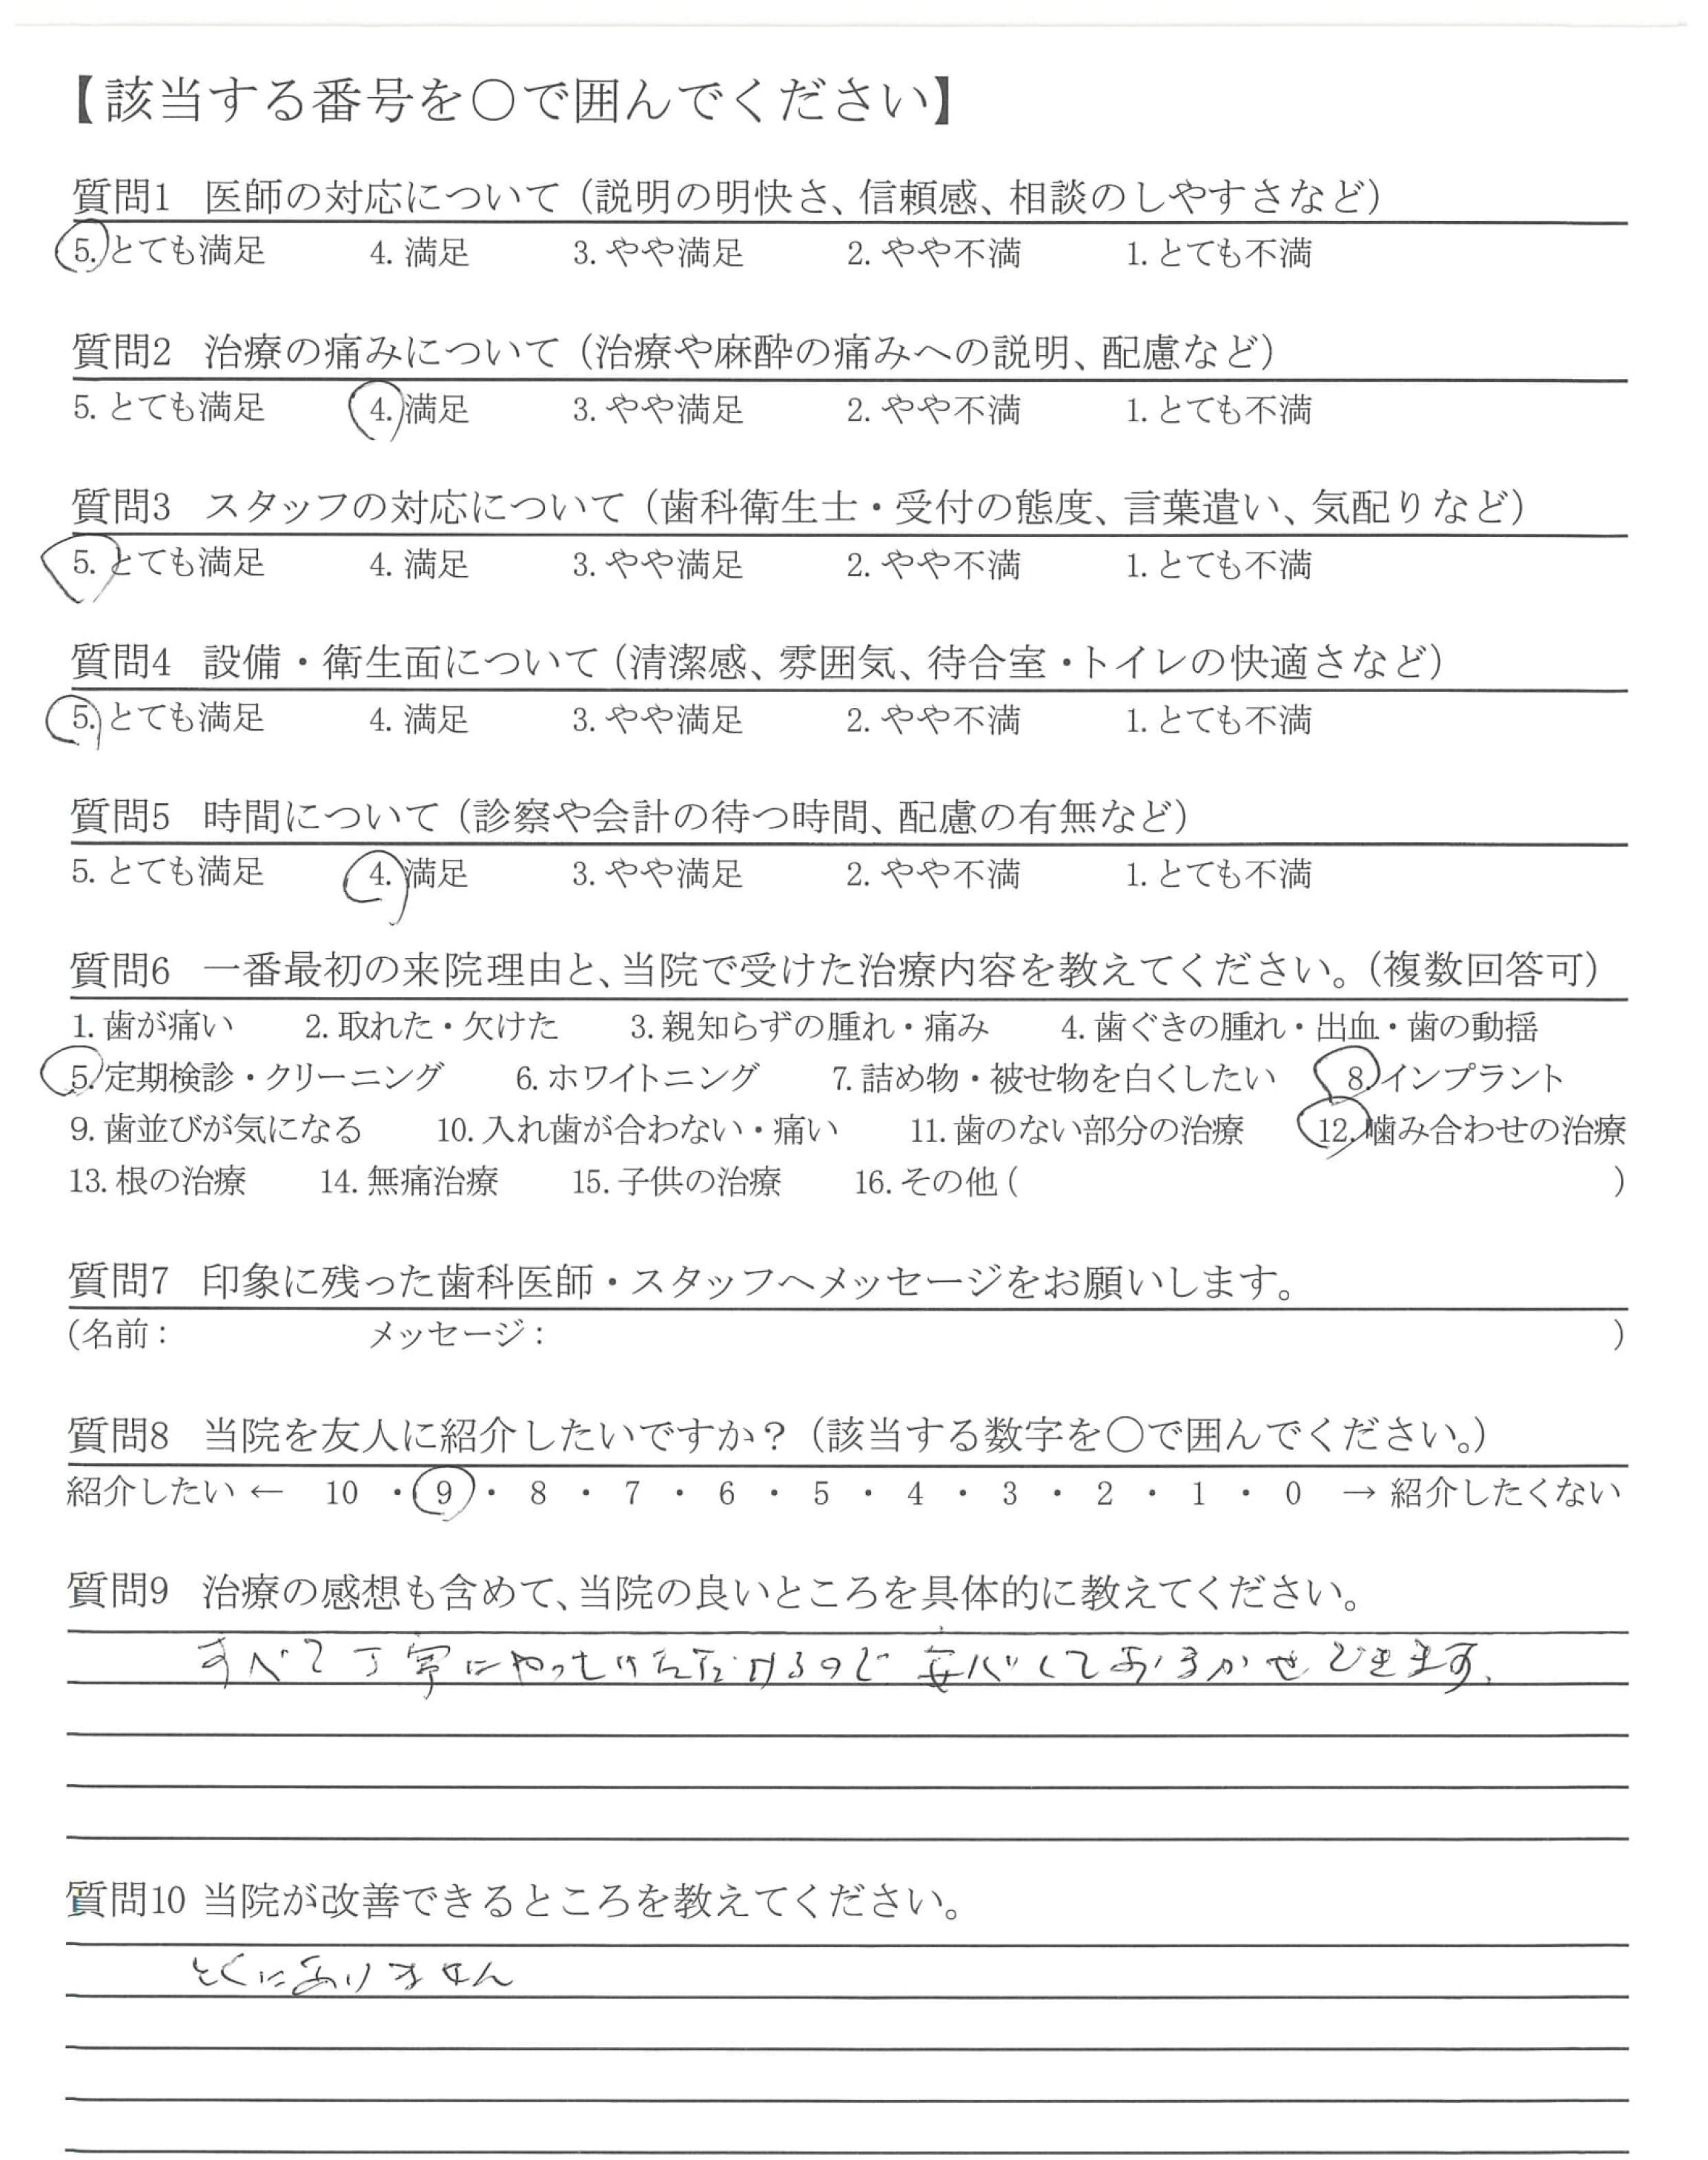 【該当する番号を○で囲んでください】
質問1 医師の対応について（説明の明快さ、信頼感、相談のしやすさなど）
5. とても満足 4. 満足 3. やや満足 2. やや不満 1. とても不満
質問2 治療の痛みについて（治療や麻酔の痛みへの説明、配慮など）
5. とても満足 4. 満足 3. やや満足 2. やや不満 1. とても不満
質問3 スタッフの対応について（歯科衛生士・受付の態度、言葉遣い、気配りなど）
5. とても満足 4. 満足 3. やや満足 2. やや不満 1. とても不満
質問4 設備・衛生面について（清潔感、雰囲気、待合室・トイレの快適さなど）
5. とても満足 4. 満足 3. やや満足 2. やや不満 1. とても不満
質問5 時間について（診察や会計の待つ時間、配慮の有無など）
5. とても満足 4. 満足 3. やや満足 2. やや不満 1. とても不満
質問6 一番最初の来院理由と、当院で受けた治療内容を教えてください。（複数回答可）
1. 歯が痛い 2. 取れた・欠けた 3. 親知らずの腫れ・痛み 4. 歯ぐきの腫れ・出血・歯の動揺
5. 定期検診・クリーニング 6. ホワイトニング 7. 詰め物・被せ物を白くしたい 8. インプラント
9. 歯並びが気になる 10. 入れ歯が合わない・痛い 11. 歯のない部分の治療 12. 噛み合わせの治療
13. 根の治療 14. 無痛治療 15. 子供の治療 16. その他（ ）
質問7 印象に残った歯科医師・スタッフへメッセージをお願いします。
（名前： メッセージ： ）
質問8 当院を友人に紹介したいですか？（該当する数字を○で囲んでください。）
紹介したい ← 10 ・ 9 ・ 8 ・ 7 ・ 6 ・ 5 ・ 4 ・ 3 ・ 2 ・ 1 ・ 0 → 紹介したくない
質問9 治療の感想も含めて、当院の良いところを具体的に教えてください。
すべて丁寧にやっていただけるので安心しておまかせできます。
質問10 当院が改善できるところを教えてください。
とくにありません